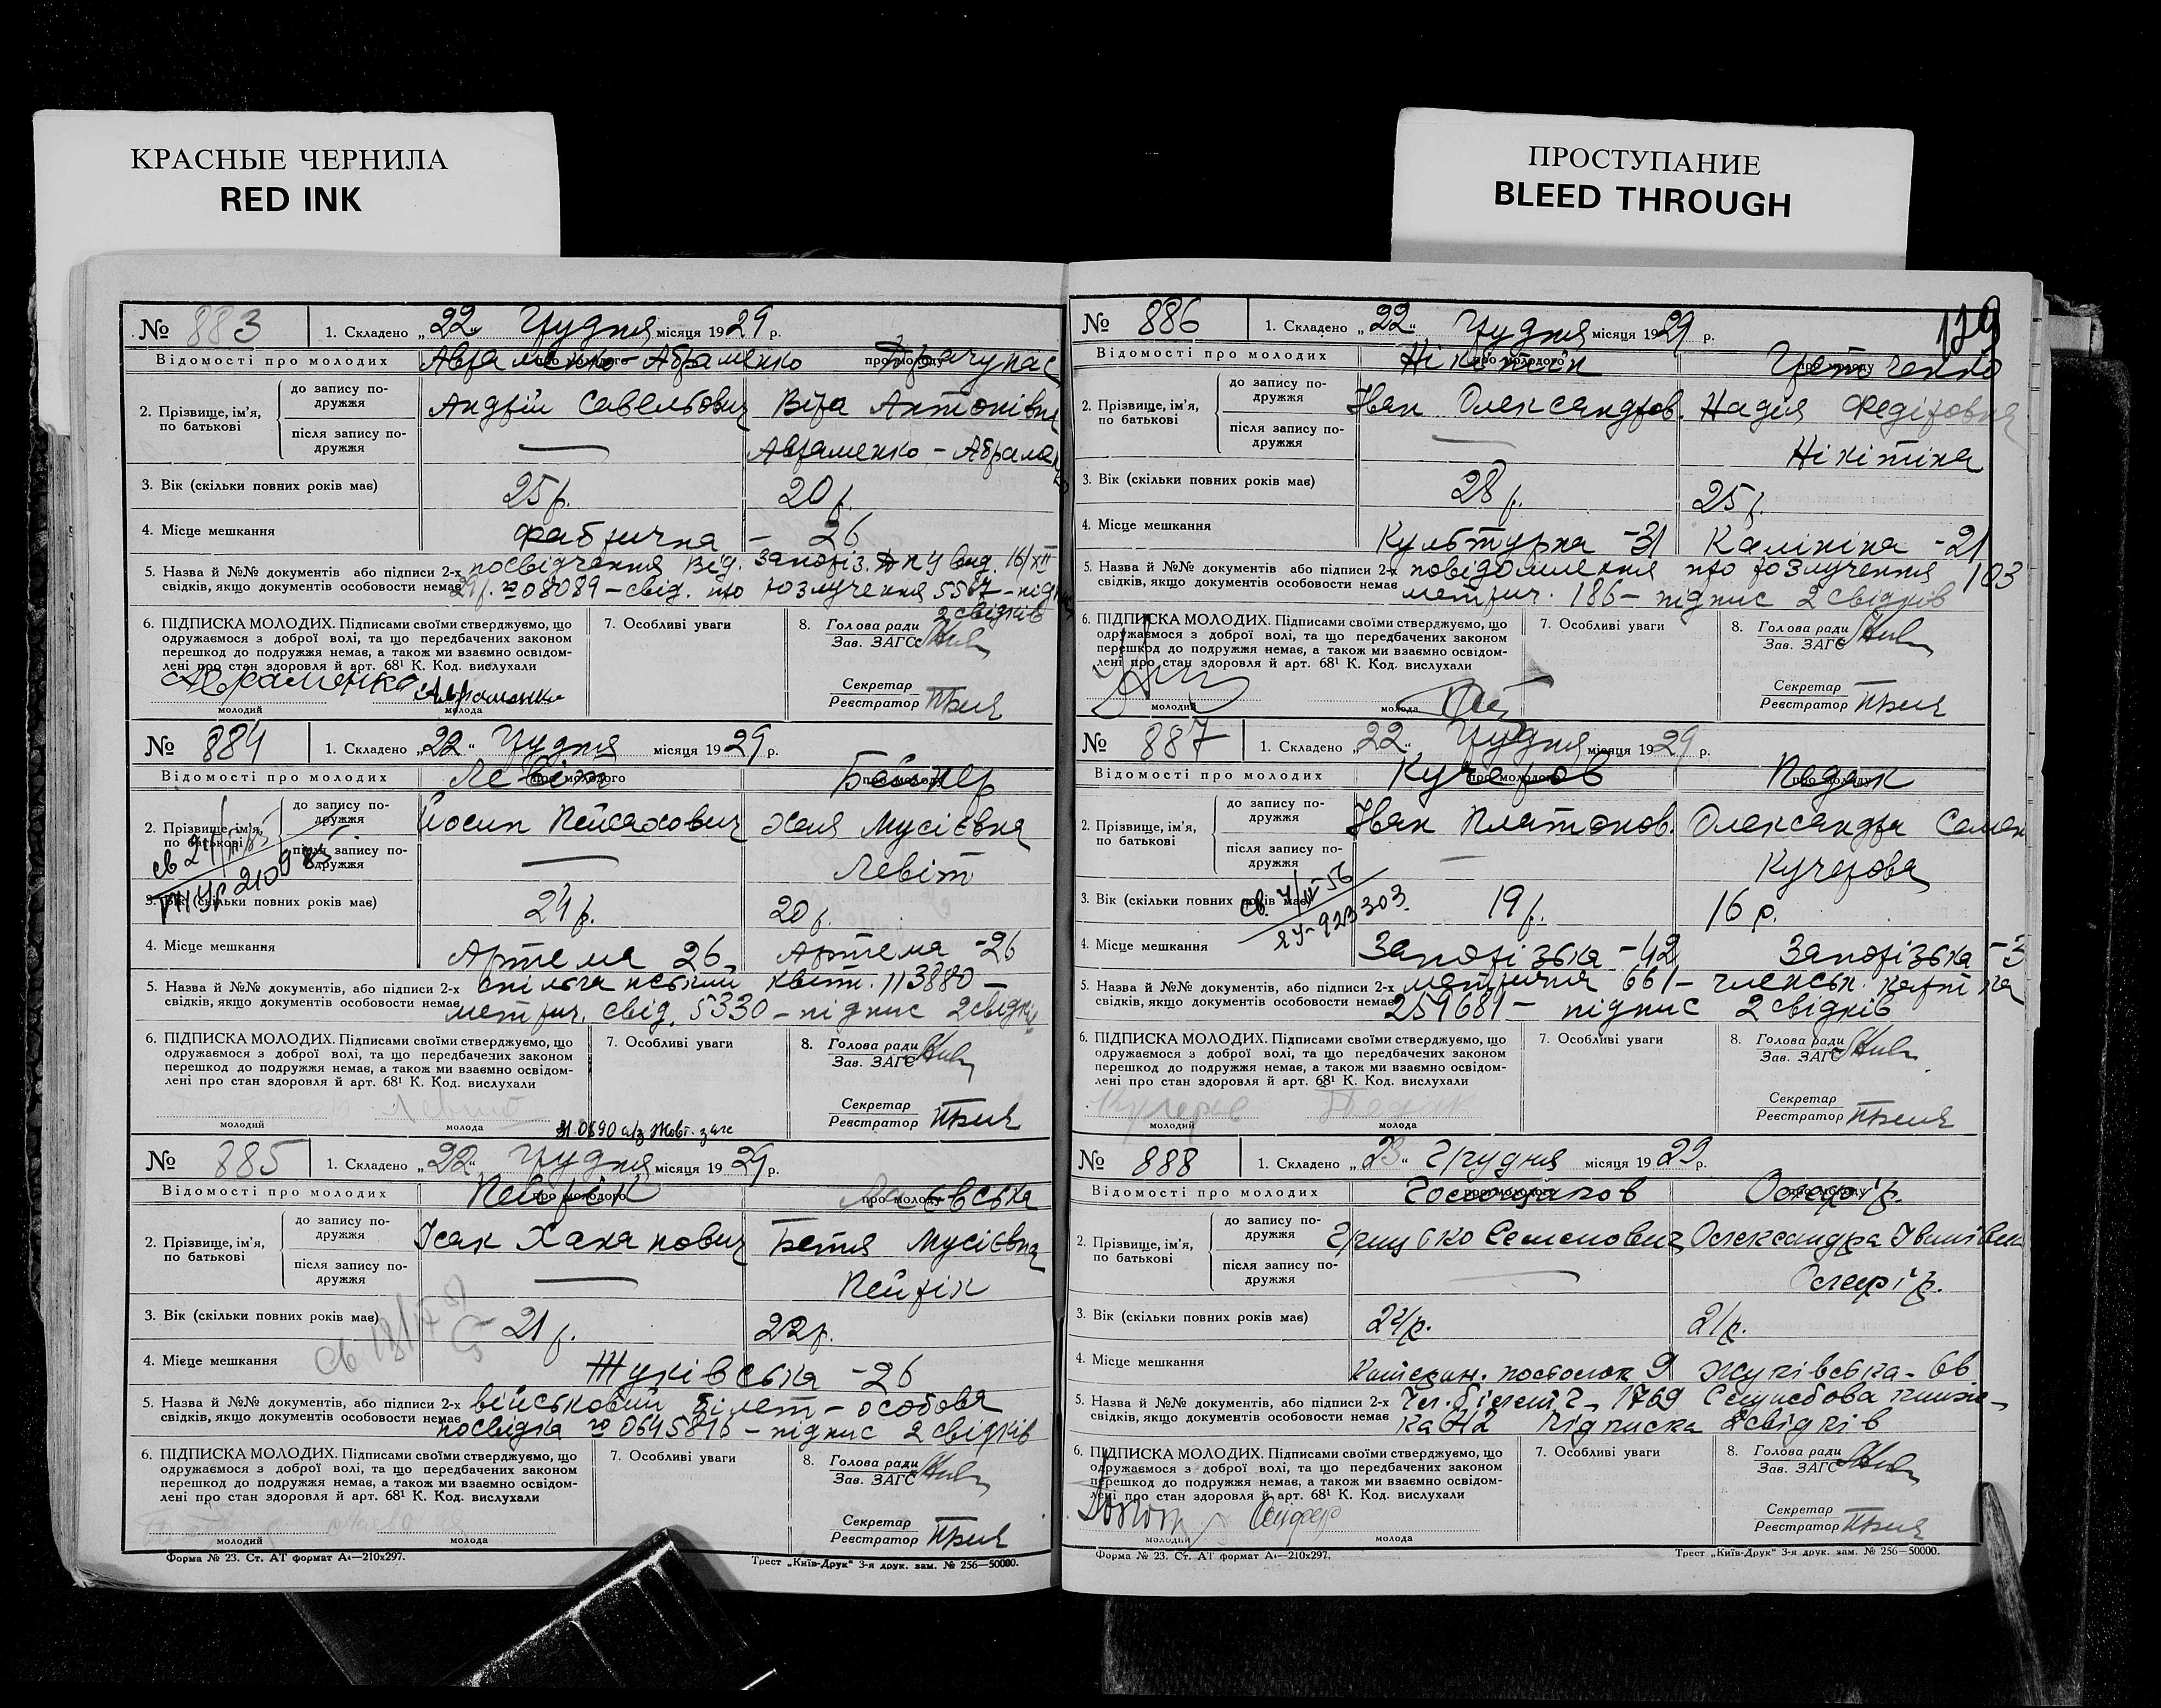 КРАСНЫЕ ЧЕРНИЛА
RED INK
ПРОСТУПАНИЕ
BLEED THROUGH
№ 883 1. Складено „22“ Грудня місяця 1929 р.
Відомості про молодих про молодого про молоду
Авраменко-Абраменко
2. Прізвище, ім'я, по батькові
до запису подружжя Андрій Савельович Віра Антонівна
після запису подружжя — Авраменко-
3. Вік (скільки повних років має) 25 р. 20 р.
4. Місце мешкання Фабрична - 26
5. Назва й №№ документів або підписи 2-х посвідчення Від. Запоріз. вид. 16/XII
свідків, якщо документів особовости немає 29 р. № 08089 - свід. про розлучення 5587 -
2 свідків
6. ПІДПИСКА МОЛОДИХ. Підписами своїми стверджуємо, що
одружаємося з доброї волі, та що передбачених законом
перешкод до подружжя немає, а також ми взаємно освідом-
лені про стан здоровля й арт. 68¹ К. Код. вислухали
7. Особливі уваги
8. Голова ради
Зав. ЗАГС
Секретар
Реєстратор
Авраменко Авраменко
молодий молода
№ 884 1. Складено „22“ Грудня місяця 1929 р.
Відомості про молодих про молодого про молоду
Левіт
2. Прізвище, ім'я, по батькові
до запису подружжя Йосип Пейсахович Хая Мусієвна
після запису подружжя — Левіт
3. Вік (скільки повних років має) 24 р. 20 р.
4. Місце мешкання Артема 26, Артема - 26
5. Назва й №№ документів, або підписи 2-х спілчанський квит. 113880 -
свідків, якщо документів особовости немає метрич. свід. 5330 - підпис 2 свідків
6. ПІДПИСКА МОЛОДИХ. Підписами своїми стверджуємо, що
одружаємося з доброї волі, та що передбачених законом
перешкод до подружжя немає, а також ми взаємно освідом-
лені про стан здоровля й арт. 68¹ К. Код. вислухали
7. Особливі уваги
8. Голова ради
Зав. ЗАГС
Секретар
Реєстратор
Левит
молодий молода
№ 885 1. Складено „22“ Грудня місяця 1929 р.
Відомості про молодих про молодого про молоду
Пейрік
2. Прізвище, ім'я, по батькові
до запису подружжя Ісак Хананович Бетя Мусієвна
після запису подружжя — Пейрік
3. Вік (скільки повних років має) 21 р. 22 р.
4. Місце мешкання Жуківська - 26
5. Назва й №№ документів, або підписи 2-х військовий білет - особова
свідків, якщо документів особовости немає посвідка № 0645816 - підпис 2 свідків
6. ПІДПИСКА МОЛОДИХ. Підписами своїми стверджуємо, що
одружаємося з доброї волі, та що передбачених законом
перешкод до подружжя немає, а також ми взаємно освідом-
лені про стан здоровля й арт. 68¹ К. Код. вислухали
7. Особливі уваги
8. Голова ради
Зав. ЗАГС
Секретар
Реєстратор
молодий молода
Форма № 23. Ст. АТ формат А₄—210x297. Трест „Київ-Друк“ 3-я друк. зам. № 256—50000.
№ 886 1. Складено „22“ Грудня місяця 1929 р.
Відомості про молодих про молодого про молоду
Нікітін
2. Прізвище, ім'я, по батькові
до запису подружжя Іван Олександров. Надія Федіровна
після запису подружжя — Нікітіна
3. Вік (скільки повних років має) 28 р. 25 р.
4. Місце мешкання Культурна - 31 Калініна - 21
5. Назва й №№ документів або підписи 2-х повідомлення про розлучення 103
свідків, якщо документів особовости немає метрич. 186 - підпис 2 свідків
6. ПІДПИСКА МОЛОДИХ. Підписами своїми стверджуємо, що
одружаємося з доброї волі, та що передбачених законом
перешкод до подружжя немає, а також ми взаємно освідом-
лені про стан здоровля й арт. 68¹ К. Код. вислухали
7. Особливі уваги
8. Голова ради
Зав. ЗАГС
Секретар
Реєстратор
молодий молода
№ 887 1. Складено „22“ Грудня місяця 1929 р.
Відомості про молодих про молодого про молоду
Кучеров Педак
2. Прізвище, ім'я, по батькові
до запису подружжя Іван Платонов. Олександра Семен
після запису подружжя — Кучерова
3. Вік (скільки повних років має) 19 р. 16 р.
4. Місце мешкання Запорізька - 42 Запорізька - 3
5. Назва й №№ документів, або підписи 2-х метрична 661 - членськ. картка
свідків, якщо документів особовости немає 259681 - підпис 2 свідків
6. ПІДПИСКА МОЛОДИХ. Підписами своїми стверджуємо, що
одружаємося з доброї волі, та що передбачених законом
перешкод до подружжя немає, а також ми взаємно освідом-
лені про стан здоровля й арт. 68¹ К. Код. вислухали
7. Особливі уваги
8. Голова ради
Зав. ЗАГС
Секретар
Реєстратор
Педак
молодий молода
№ 888 1. Складено „23“ Грудня місяця 1929 р.
Відомості про молодих про молодого про молоду
2. Прізвище, ім'я, по батькові
до запису подружжя Грицько Семенович Олександра Іванівна
після запису подружжя —
3. Вік (скільки повних років має) 24 р. 21 р.
4. Місце мешкання 9 Жуківська - 66
5. Назва й №№ документів, або підписи 2-х Чл. білет 1769 Службова книж-
свідків, якщо документів особовости немає ка 42 підписка 2 свідків
6. ПІДПИСКА МОЛОДИХ. Підписами своїми стверджуємо, що
одружаємося з доброї волі, та що передбачених законом
перешкод до подружжя немає, а також ми взаємно освідом-
лені про стан здоровля й арт. 68¹ К. Код. вислухали
7. Особливі уваги
8. Голова ради
Зав. ЗАГС
Секретар
Реєстратор
молодий молода
Форма № 23. Ст. АТ формат А₄—210x297. Трест „Київ-Друк“ 3-я друк. зам. № 256—50000.